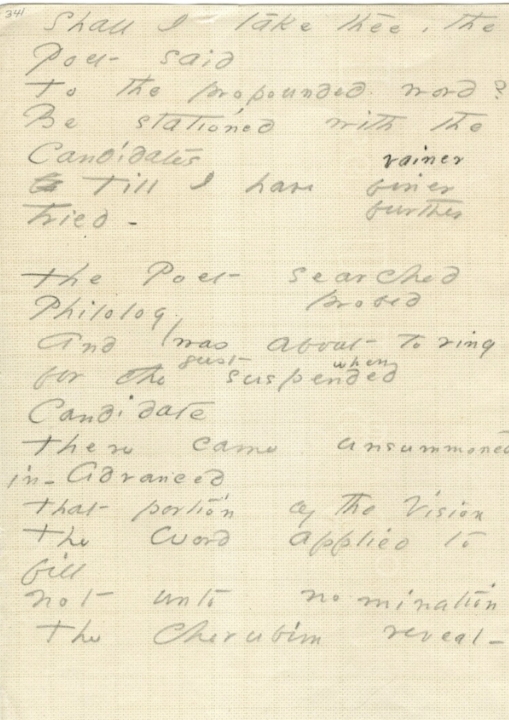 341
Shall I take thee, the
Poet said
To the propounded word?
Be stationed with the
Candidates
vainer
Till I have finer
further
tried –
The Poet searched
probed
Philolog
And was about to ring
just when
for the suspended
Candidate
There came unsummoned
in – Advanced
That portion of the Vision
The Word applied to
fill
Not unto nomination
The Cherubim reveal –